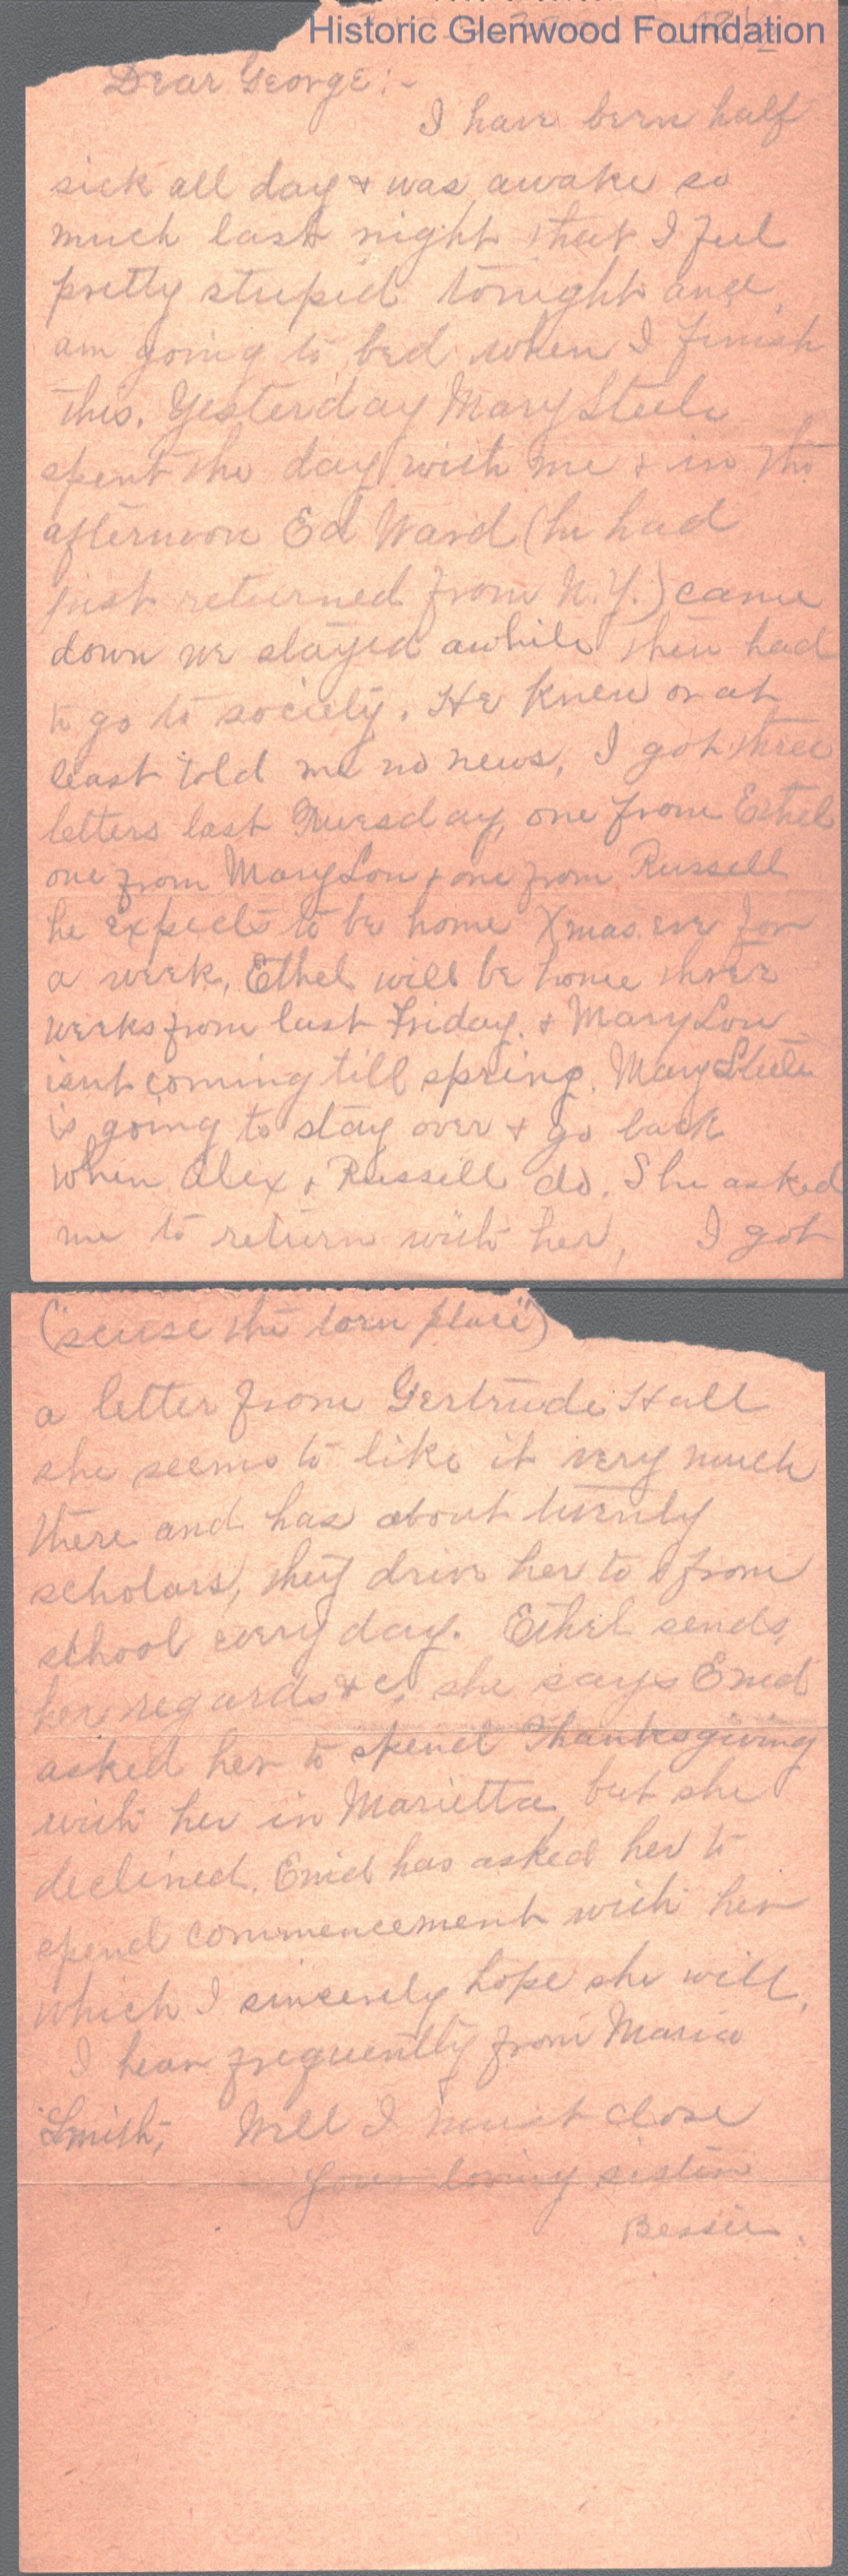 Historic Glenwood Foundation
Dear George:-
I have been half
sick all day & was awake so
much last night that I feel
pretty stupid tonight and
am going to bed when I finish
this. Yesterday Mary Steele
spent the day with me & in the
afternoon Ed Ward (he had
just returned from N.Y.) came
down we stayed awhile then had
to go to society. He knew or at
least told me no news, I got three
letters last Thursday, one from Ethel
one from Mary Lou & one from Russell
he expects to be home Xmas eve for
a week, Ethel will be home three
weeks from last Friday. & Mary Lou
isnt coming till spring. Mary Steele
is going to stay over & go back
when Alex & Russell do. She asked
me to return with her, I got
("scuse the torn place")
a letter from Gertrude Hall
she seems to like it very much
there and has about twenty
scholars, they drive her to & from
school every day. Ethel sends
her regards &c, she says Enid
asked her to spend Thanksgiving
with her in Marietta but she
declined. Enid has asked her to
spend commencement with her
which I sincerely hope she will.
I hear frequently from Maria
Smith, Well I must close
Your loving sister
Bessie.